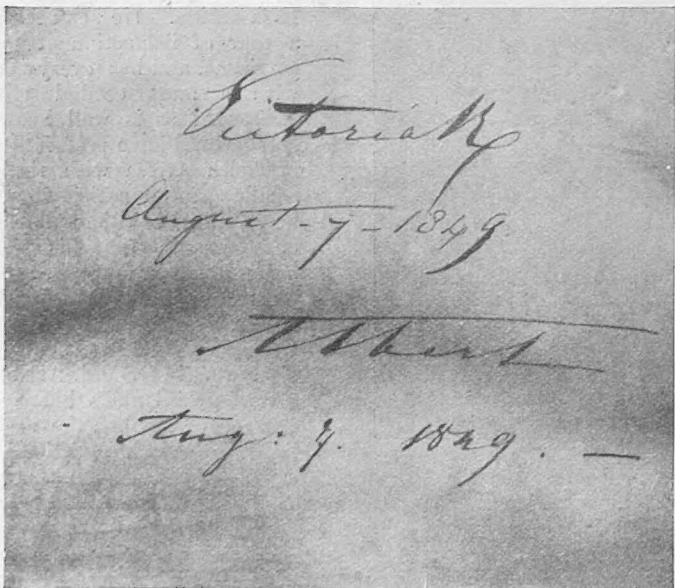 Victoria R
August - 7 - 1849
Albert
Aug: 7. 1849. —